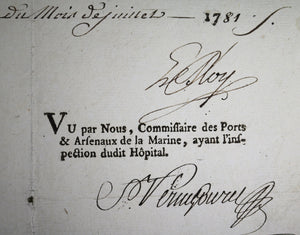 du Mois de juillet — 1781
Le Roy
VU par Nous, Commissaire des Ports
& Arsenaux de la Marine, ayant l'ins-
pection dudit Hôpital.